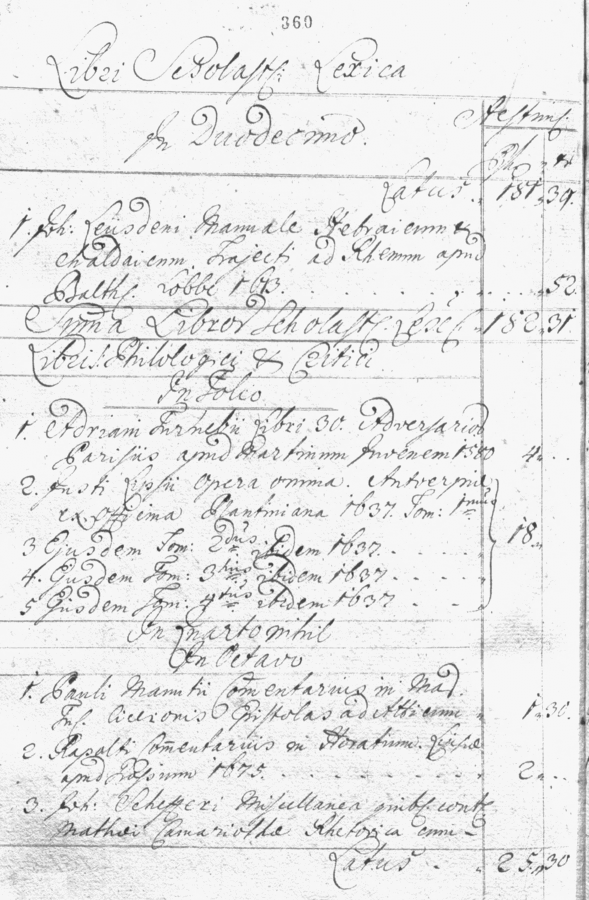 360
Libri Scholast: Lexica
In Duodecimo.
Latus 181 39.
1. Joh: Leusdeni Manuale Hebraicum &
chaldaicum Trajecti ad Rhenum apud
Balth: Lobbe 1683. 52.
Summa Libror Scholast: Lexic: 182 31
Libri Philologici & Critici
In Folio
1. Adriani Turnebii Libri 30. Adversarior
Parisiis apud Martinum Juvenem 1580 4.
2. Justi Lipsii Opera omnia. Antverpiæ
ex Officina Plantiniana 1637. Tom: 1mus
18.
3 Ejusdem Tom: 2dus. Ibidem 1637.
4. Ejusdem Tom: 3tius Ibidem 1637
5 Ejusdem Tom: 4tus Ibidem 1637
In Quarto nihil
In Octavo
1. Pauli Manutii Commentarius in Mar.
Tul. Ciceronis Epistolas ad Atticum 1. 30.
2. Rapolti Commentarius in Horatium. Lipsiæ
apud 1675. 2.
3. Joh: Schefferi Miscellanea cont:
Mathæi Camariotæ Rhetorica cum
Latus 25. 30